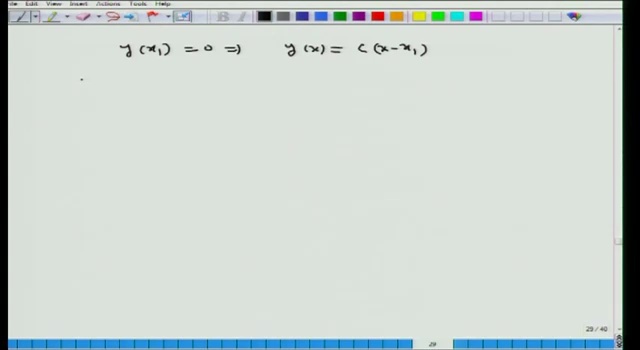 Edit View Insert Actions Tools Help
y(x₁) = 0 ⇒ y(x) = c(x-x₁)
29 / 40
29